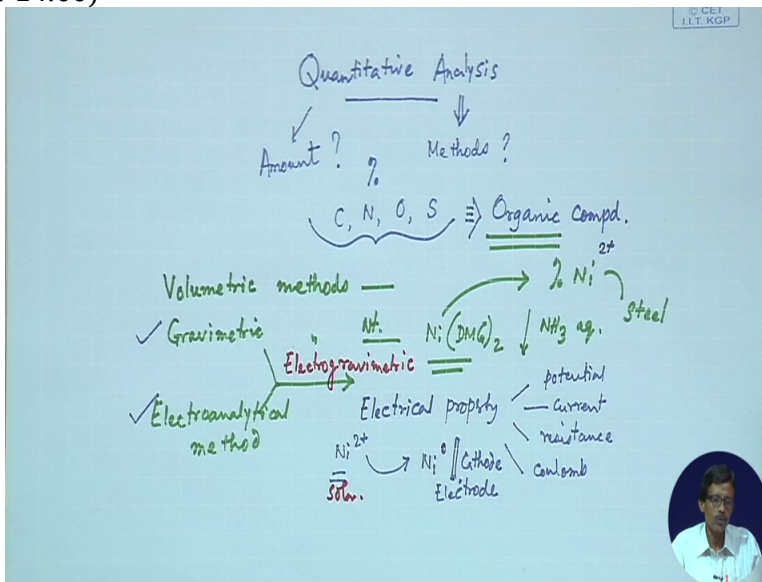 14:00)
© CET
I.I.T. KGP
Quantitative Analysis
Amount ?
Methods ?
%
C, N, O, S ⇛ Organic compd.
Volumetric methods —
% Ni2+
Steel
✓ Gravimetric " Nt. Ni(DMG)2 ↓ NH3 aq.
Electrogravimetric
✓ Electroanalytical method
Electrical property
potential
current
resistance
coulomb
Ni2+ → Ni0 || Cathode
Soln.
Electrode